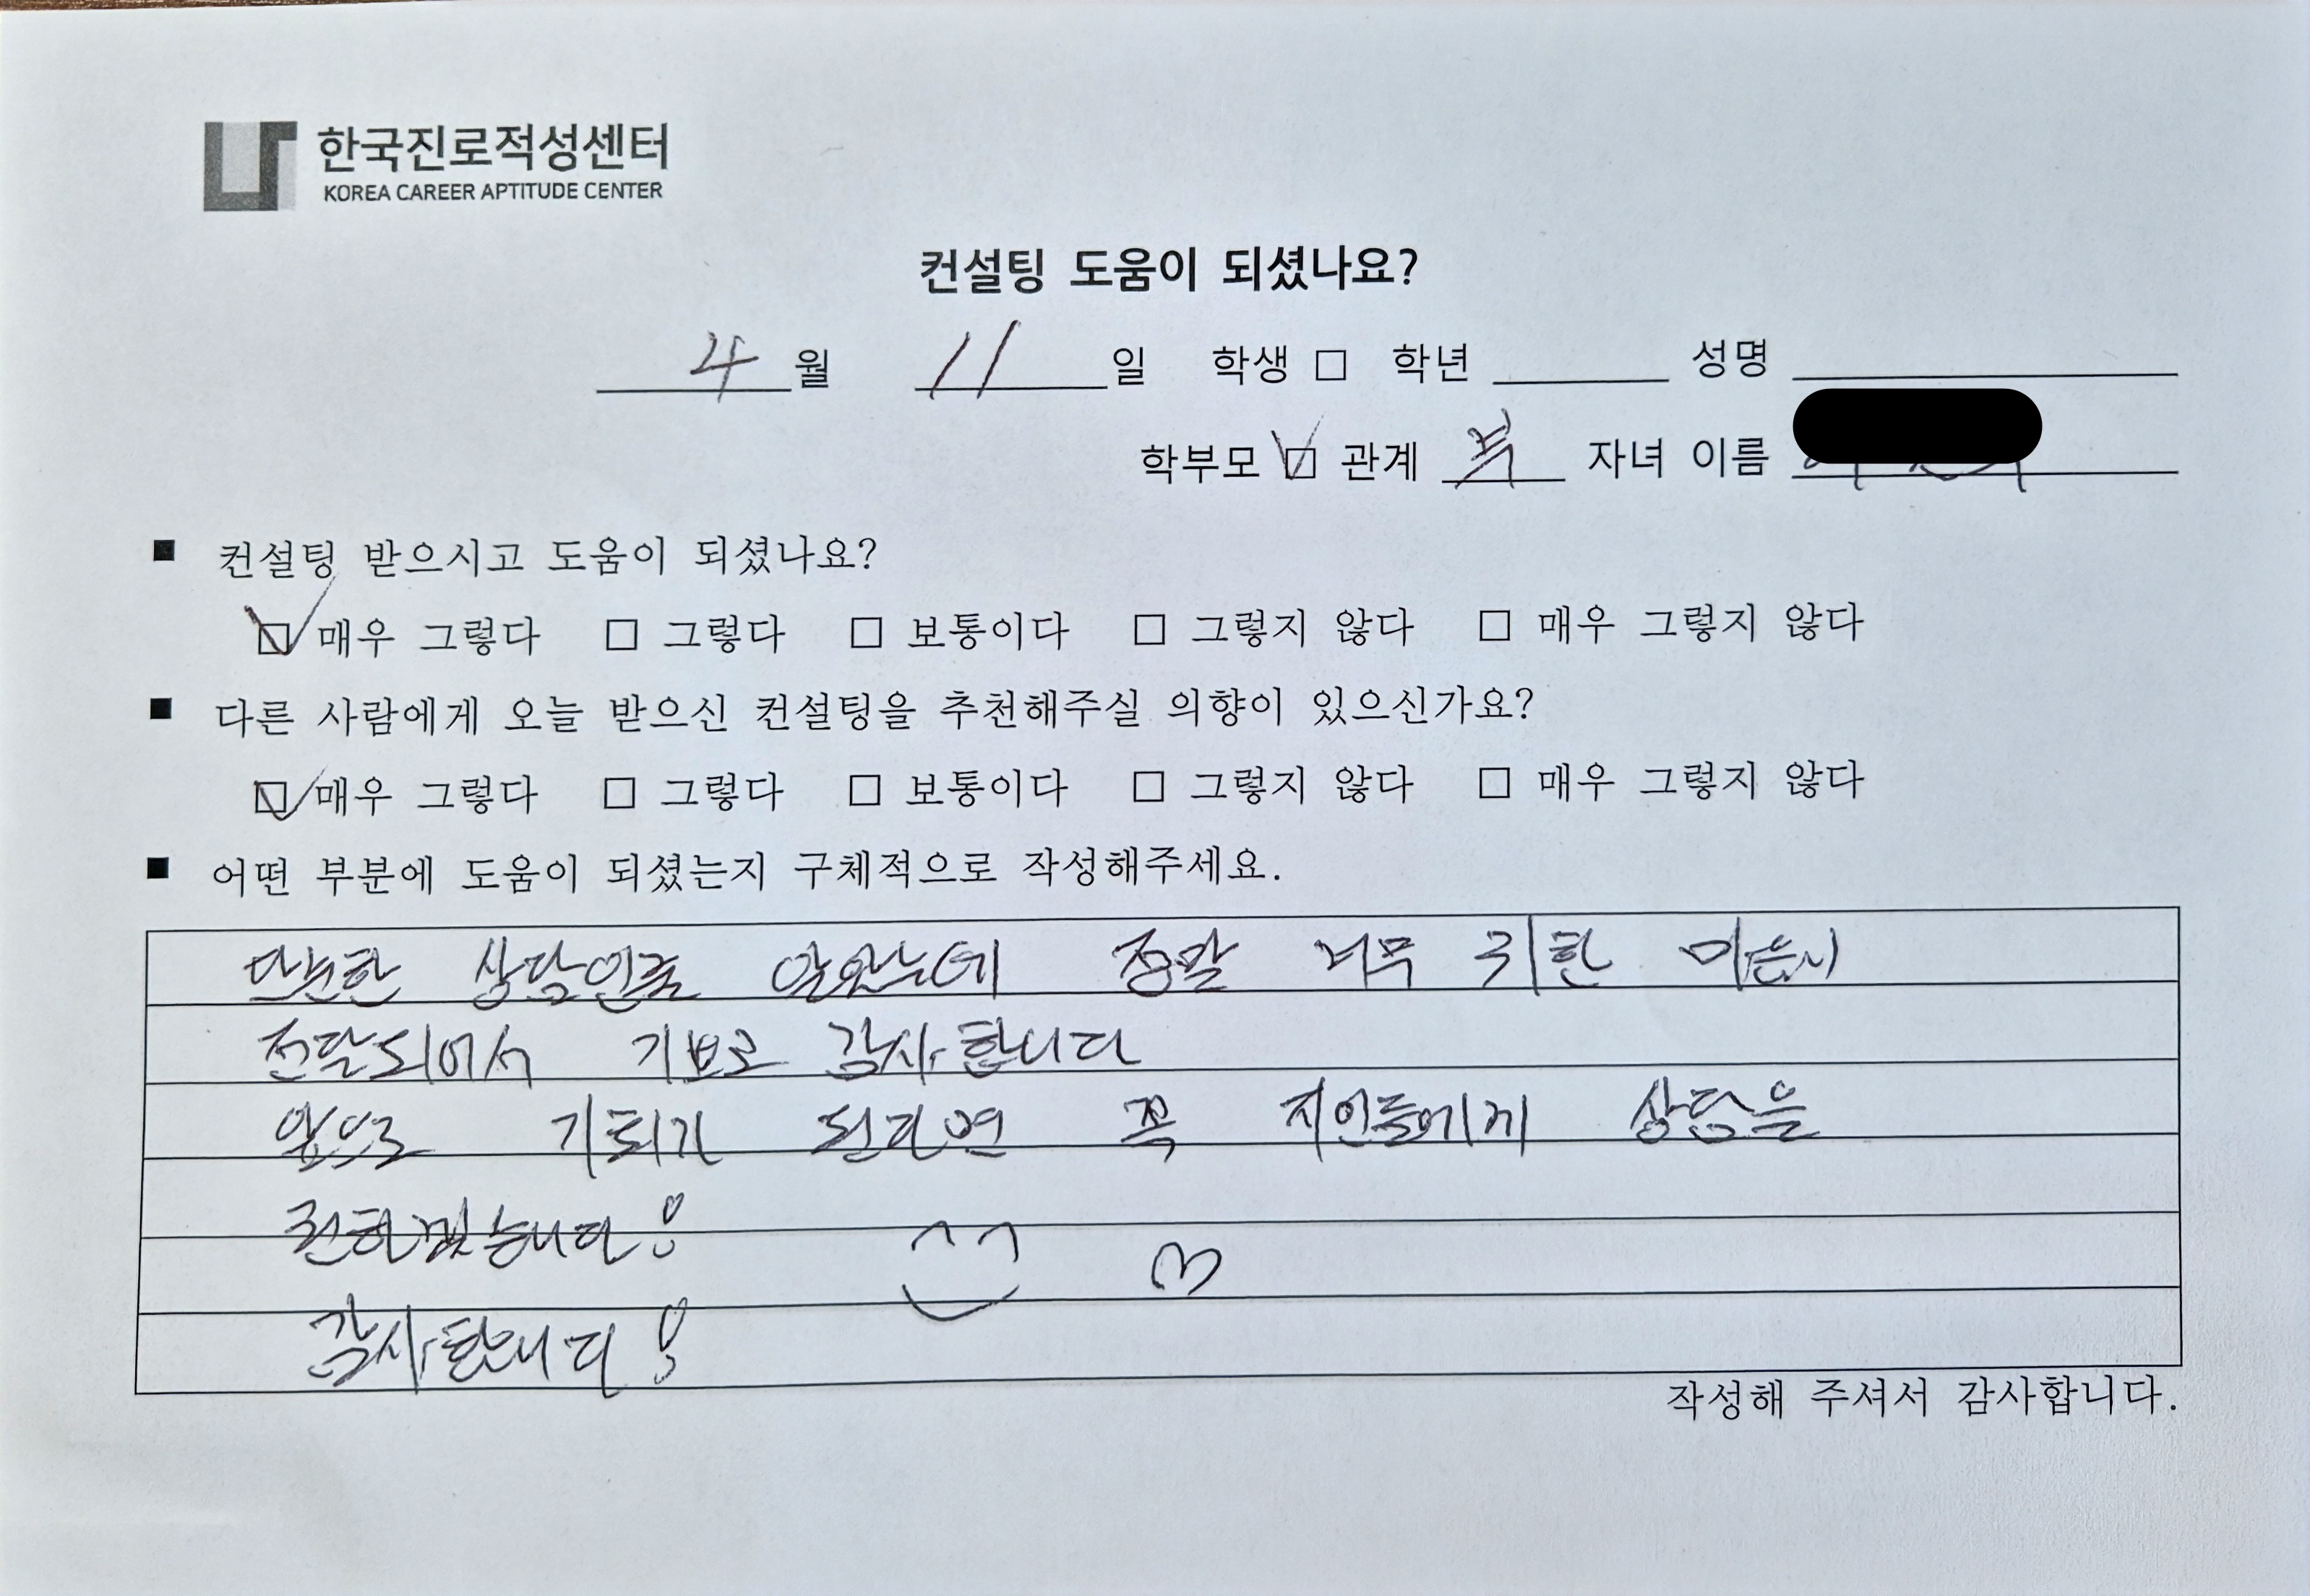 한국진로적성센터
KOREA CAREER APTITUDE CENTER
컨설팅 도움이 되셨나요?
4 월 11 일 학생 □ 학년 성명
학부모 ☑ 관계 부 자녀 이름
■ 컨설팅 받으시고 도움이 되셨나요?
☑ 매우 그렇다 □ 그렇다 □ 보통이다 □ 그렇지 않다 □ 매우 그렇지 않다
■ 다른 사람에게 오늘 받으신 컨설팅을 추천해주실 의향이 있으신가요?
☑ 매우 그렇다 □ 그렇다 □ 보통이다 □ 그렇지 않다 □ 매우 그렇지 않다
■ 어떤 부분에 도움이 되셨는지 구체적으로 작성해주세요.
단순한 상담인줄 알았는데 정말 너무 귀한
전달되어서 감사합니다
앞으로 기회가 된다면 꼭 지인들에게 상담을
권하겠습니다!
감사합니다!
작성해 주셔서 감사합니다.